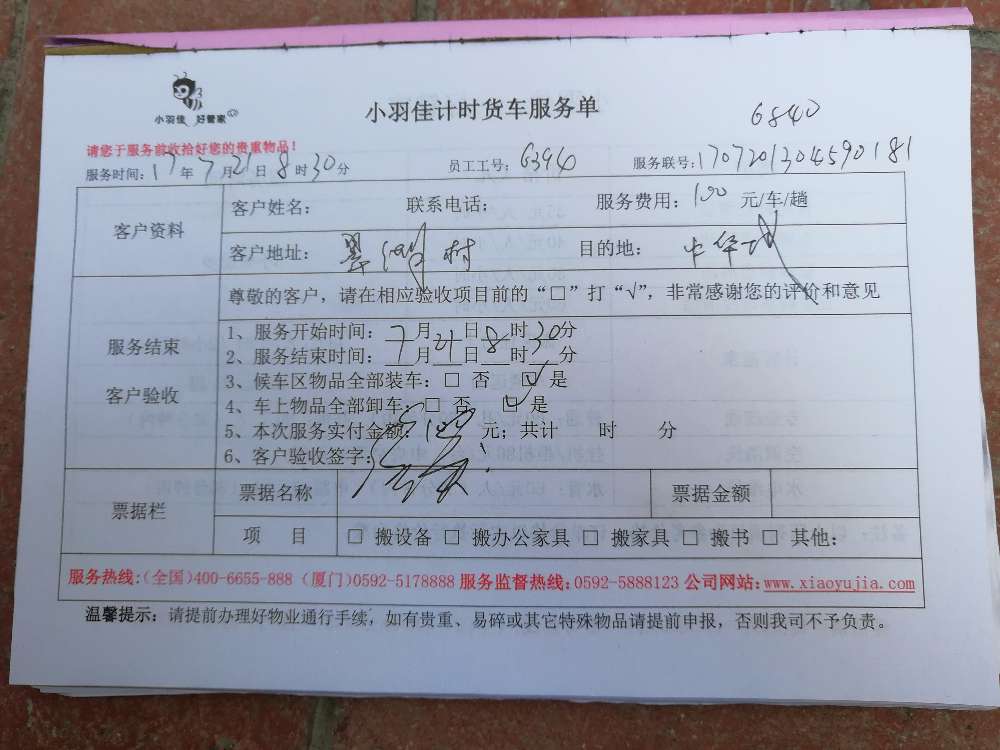 小羽佳 好管家
小羽佳计时货车服务单
6840
请您于服务前收拾好您的贵重物品！
服务时间：17年7月21日8时30分 员工工号：6394 服务联号：1707201304590181
客户资料
客户姓名： 联系电话： 服务费用：100 元/车/趟
客户地址： 村 目的地：中华城
尊敬的客户，请在相应验收项目前的“□”打“√”，非常感谢您的评价和意见
服务结束
客户验收
1、服务开始时间：7月21日8时30分
2、服务结束时间：7月21日8时30分
3、候车区物品全部装车：□ 否 ☑ 是
4、车上物品全部卸车：□ 否 ☑ 是
5、本次服务实付金额：100 元；共计 时 分
6、客户验收签字：
票据栏
票据名称 票据金额
项 目 □ 搬设备 □ 搬办公家具 □ 搬家具 □ 搬书 □ 其他：
服务热线：（全国）400-6655-888（厦门）0592-5178888 服务监督热线：0592-5888123 公司网站：www.xiaoyujia.com
温馨提示：请提前办理好物业通行手续，如有贵重、易碎或其它特殊物品请提前申报，否则我司不予负责。